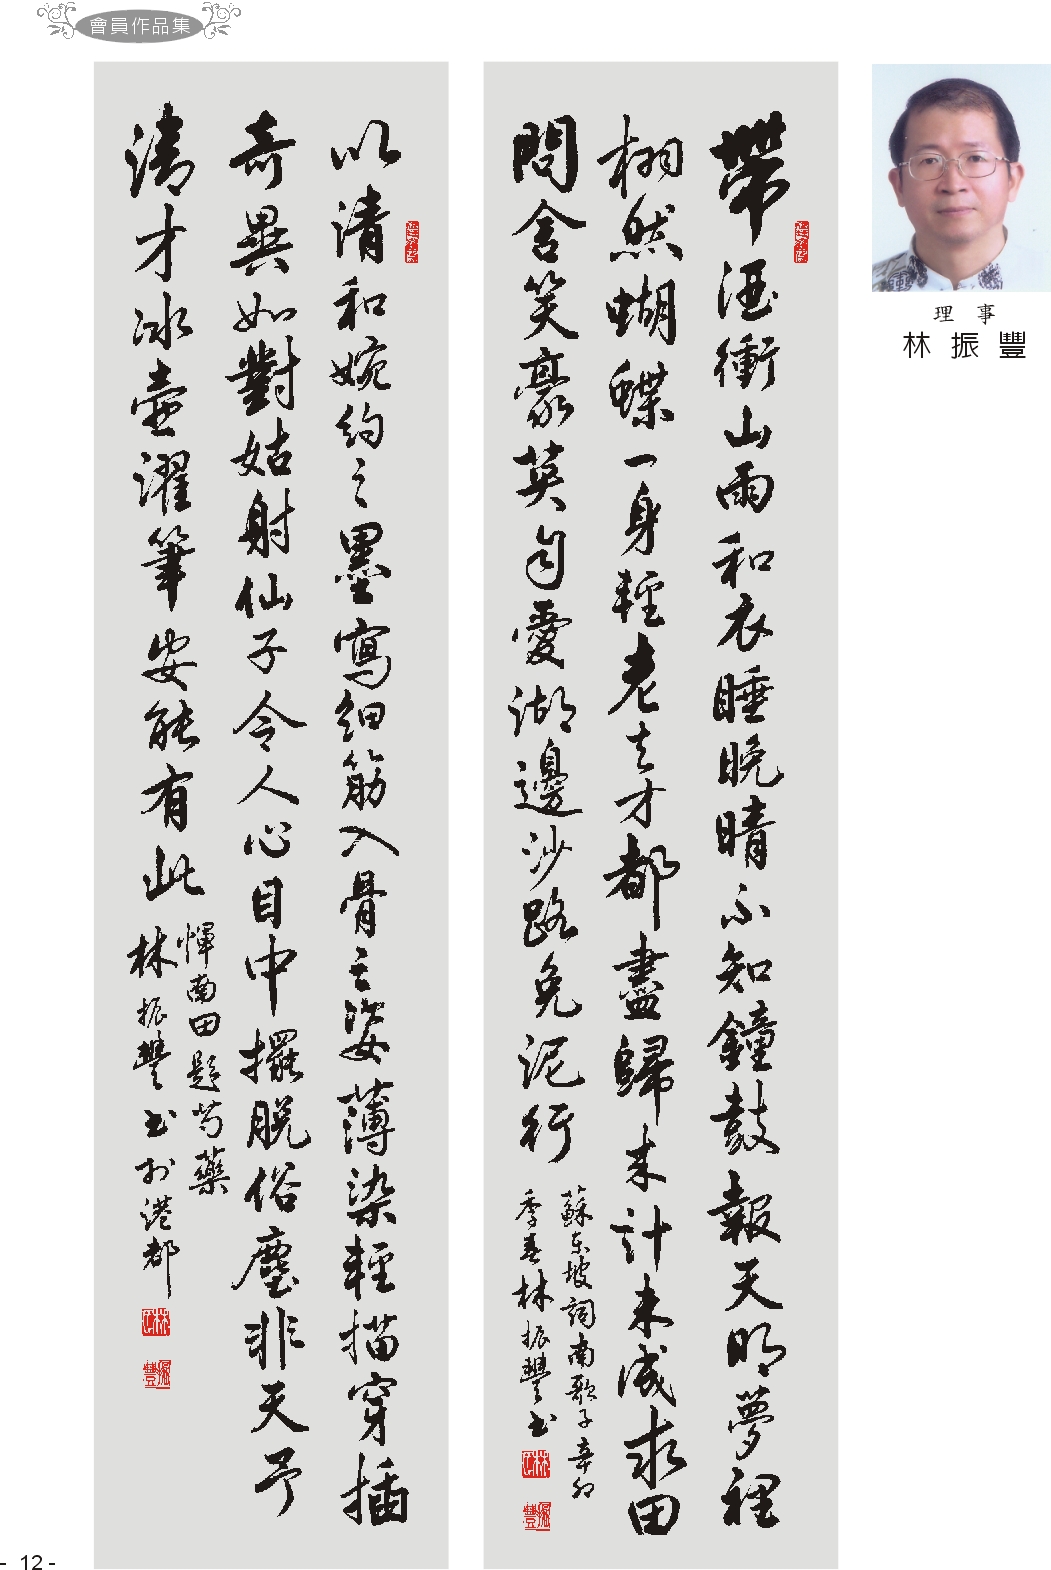 會員作品集
理 事
林 振 豐
帶酒衝山雨和衣睡晚晴不知鐘鼓報天明夢裡
栩然蝴蝶一身輕老去才都盡歸來計未成求田
問舍笑豪英自愛湖邊沙路免泥行
蘇東坡詞南歌子辛卯
季春林振豐書
以清和婉約之墨寫細筋入骨之姿薄染輕描穿插
奇異如對姑射仙子令人心目中擺脫俗塵非天予
清才冰壺濯筆安能有此
惲南田題芍藥
林振豐書於港都
- 12 -